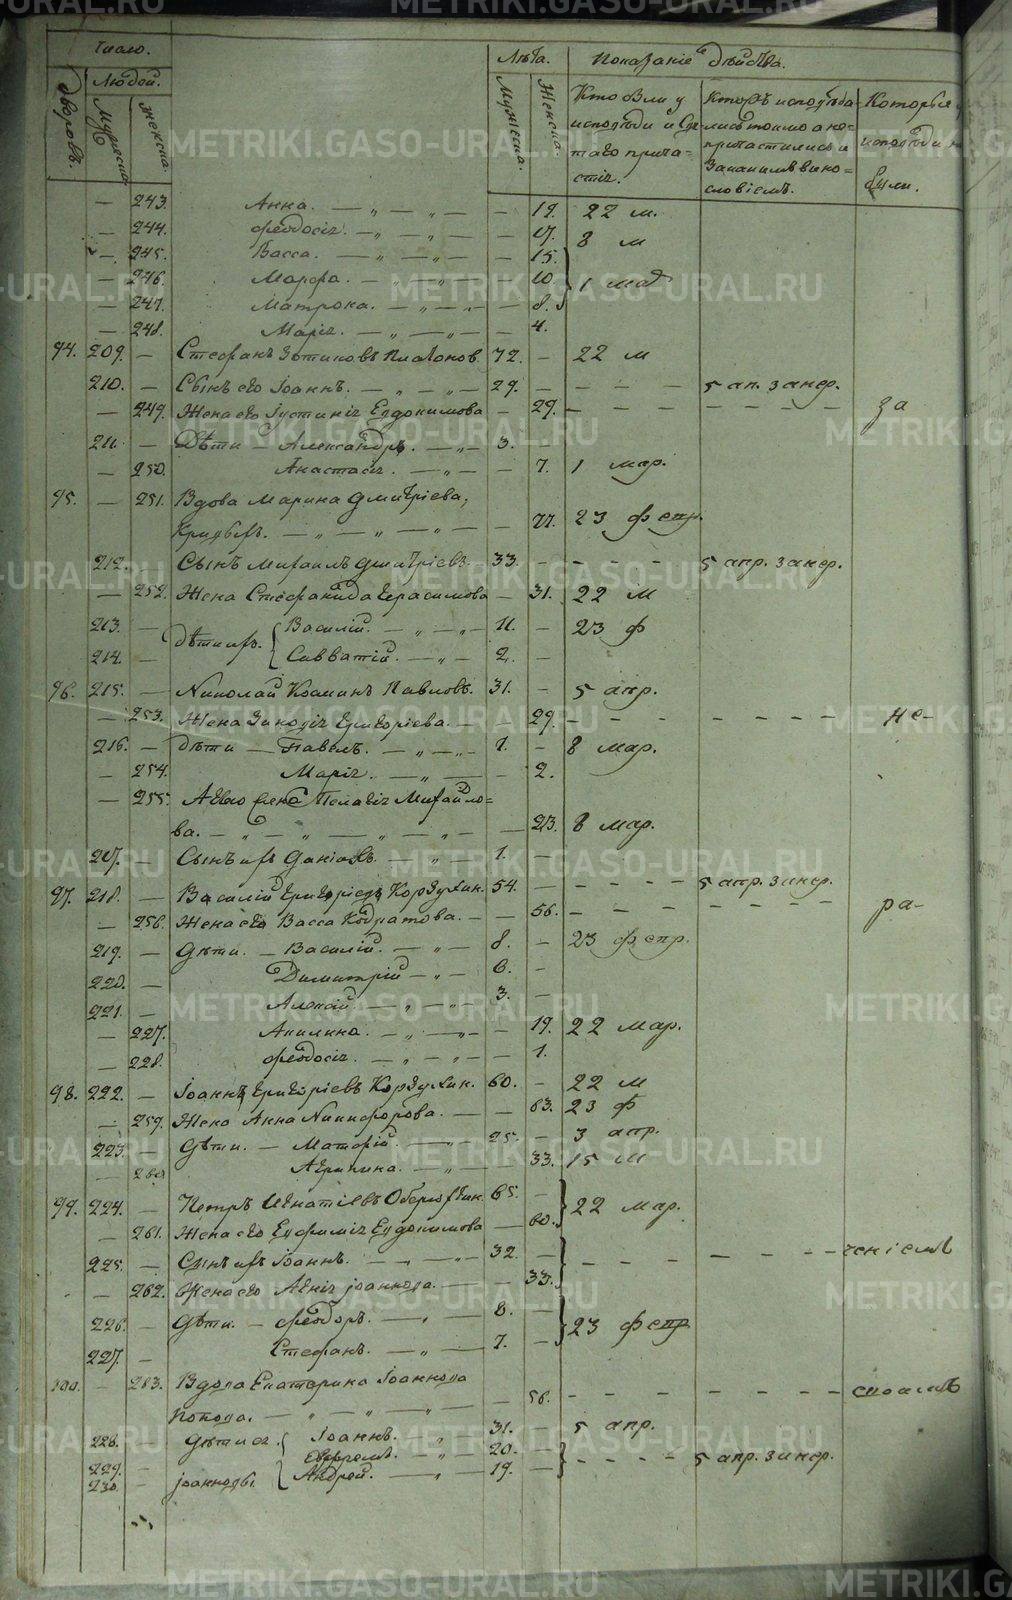 Число.
Лѣта. Показаніе дѣйства.
дворовъ. Людей.
Мужеска. Женска. Мужеска. Женска.
Кто были у исповѣди и Свя-таго прича-стія.
Которы исповѣда-лись токмо а не причастились и за какимъ вино-словіемъ.
Которыя исповѣди не были.
— 243. Анна. — „ — „ — — 19. 22 м.
— 244. Феодосія. — „ — „ — — 17. 8 м
— 245. Васса. — „ — „ — — 15.
— 246. Марфа. — „ — „ — — 10. 1 мар
— 247. Матрона. — „ — „ — — 8.
— 248. Марія. — „ — „ — — 4.
94. 209. — Стефанъ Зотиковъ Платонов. 72. — 22 м
210. — Сынъ его Іоаннъ. — „ — „ — 29. — — — — 5 ап. за неф.
— 249. Жена его Іустинія Евдокимова — 29. — — — — — — — за
211. — Дѣти — Александръ. — „ — 3.
— 250. Анастасія. — „ — — 7. 1 мар.
95. — 251. Вдова Марина Дмитріева,
— „ — „ — „ — — 77. 23 февр.
212. — Сынъ Михаилъ Дмитріевъ. 33. — — — — 5 апр. за неф.
— 252. Жена Стефанида Герасимова — 31. 22 м
213. — Дѣти ихъ. Василій. — „ — „ — 11. — 23 ф
214. — Савватій. — „ — 2. —
96. 215. — Николай Козминъ Павловъ. 31. — 5 апр.
— 253. Жена Зиновія Григоріева. — — 29. — — — — — — — не-
216. — дѣти — Павелъ. — „ — „ — 7. — 8 мар.
— 254. Марія. — „ — — 2.
— 255. Пелагія Михайло=
ва. — „ — „ — „ — „ — — 23. 8 мар.
217. — Сынъ ихъ Даніилъ. — „ — 1. —
97. 218. — Василій Григоріевъ Корзухин. 54. — — — — — 5 апр. за неф.
— 256. Жена его Васса Кодратова. — — 56. — — — — — — — ра-
219. — Дѣти. — Василій. — „ — 8. — 23 февр.
220. — Димитрій — „ — 6. —
221. — Алексій. — „ — „ — 3. —
— 227. Акилина. — „ — „ — — 19. 22 мар.
— 228. Феодосія. — „ — „ — — 1.
98. 222. — Іоаннъ Григоріевъ Корзухин. 60. — 22 м
— 259. Жена Анна Никифорова. — — 63. 23 ф
223. — Дѣти. — — „ — 25. — 3 апр.
— 260 Агрипина. — „ — — 33. 15 м
99. 224. — Петръ Игнатіевъ Оберюхтин. 65. — 22 мар.
— 261. Жена его Евфимія Евдокимова — 60.
225. — Сынъ ихъ Іоаннъ. — „ — „ — 32. — — — — — — — — ченіемъ
— 262. Жена его Агнія Іоаннова. — — 33.
226. — Дѣти. — Феодоръ. — „ — 8. — 23 февр
227. — Стефанъ. — „ — 7. —
100. — 263. Вдова Екатерина Іоаннова
Попова. — „ — „ — „ — — 56. — — — — — — — споимъ
228. — Дѣти ея. Іоаннъ. „ 31. — 5 апр.
229. — Евфремъ. — „ 20. — — — — — 5 апр. за неф.
230. — Іоанновы. Андрей. — „ — 19. —